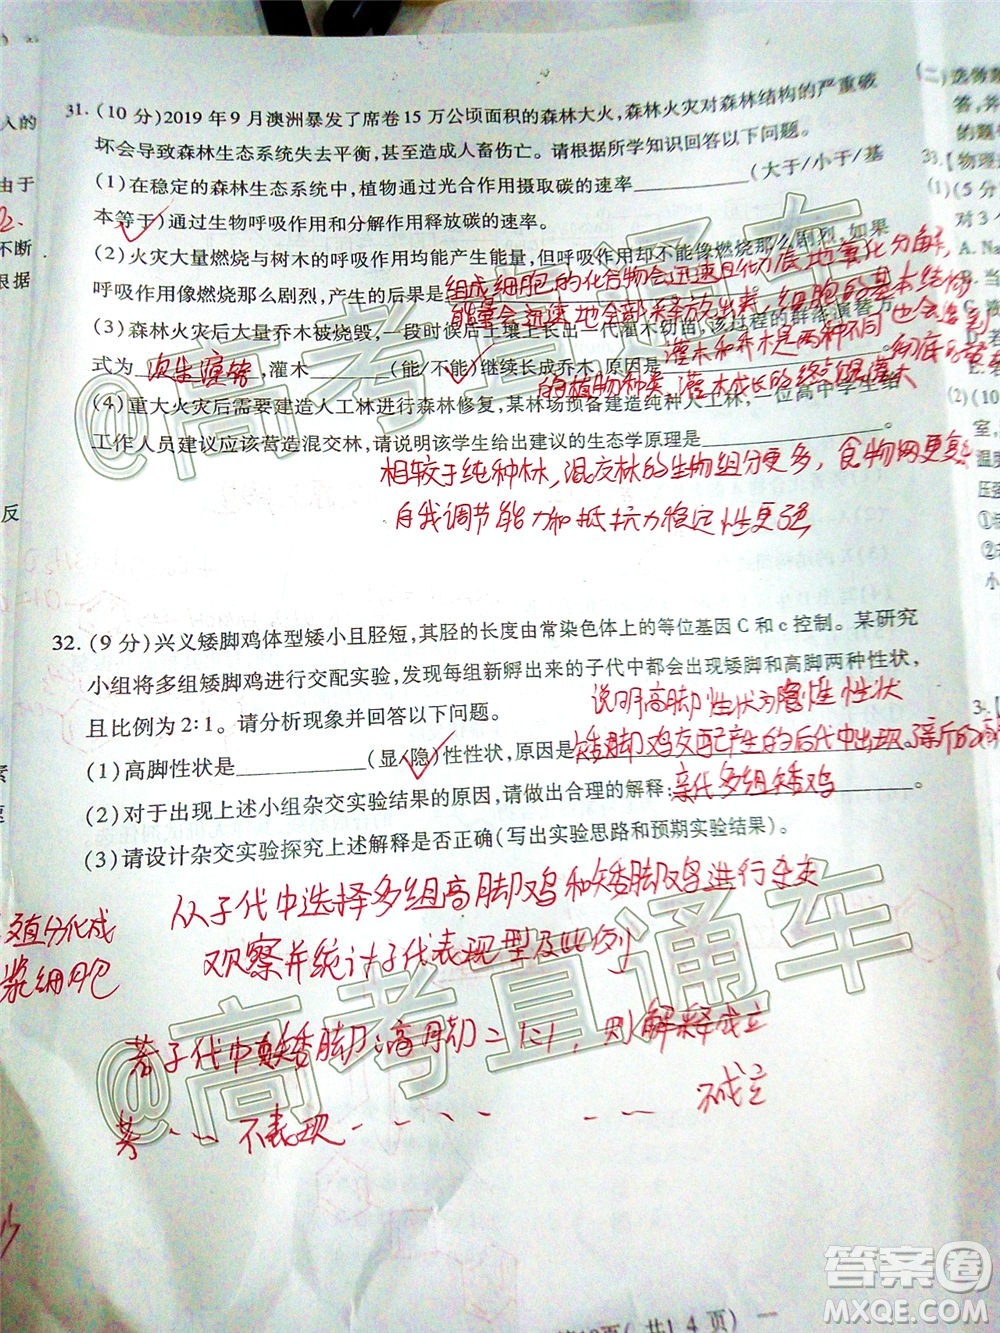 31. (10 分)2019 年 9 月澳洲暴发了席卷 15 万公顷面积的森林大火,森林火灾对森林结构的严重破
坏会导致森林生态系统失去平衡,甚至造成人畜伤亡。请根据所学知识回答以下问题。
(1)在稳定的森林生态系统中,植物通过光合作用摄取碳的速率__________(大于/小于/基
本等于)通过生物呼吸作用和分解作用释放碳的速率。
(2)火灾大量燃烧与树木的呼吸作用均能产生能量,但呼吸作用却不能像燃烧那么剧烈,如果
呼吸作用像燃烧那么剧烈,产生的后果是
组成细胞的化合物会迅速且彻底地氧化分解,
能量会迅速地全部释放出来,细胞的基本结构
也会受到
彻底的
(3)森林火灾后大量乔木被烧毁,一段时候后土壤上长出一代灌木幼苗,该过程的群落演替方
式为 次生演替 ,灌木______(能/不能)继续长成乔木,原因是
灌木和乔木是两种不同
的植物种类,灌木成长的终点是灌木
(4)重大火灾后需要建造人工林进行森林修复,某林场预备建造纯种人工林,一位高中学生给
工作人员建议应该营造混交林,请说明该学生给出建议的生态学原理是__________。
相较于纯种林,混交林的生物组分更多,食物网更复
自我调节能力和抵抗力稳定性更强
32. (9 分)兴义矮脚鸡体型矮小且胫短,其胫的长度由常染色体上的等位基因 C 和 c 控制。某研究
小组将多组矮脚鸡进行交配实验,发现每组新孵出来的子代中都会出现矮脚和高脚两种性状,
且比例为 2:1。请分析现象并回答以下问题。
说明高脚性状为隐性性状
(1)高脚性状是__________(显/隐)性性状,原因是 矮脚鸡交配产生的后代中出现
(2)对于出现上述小组杂交实验结果的原因,请做出合理的解释: 亲代多组矮鸡 。
(3)请设计杂交实验探究上述解释是否正确(写出实验思路和预期实验结果)。
从子代中选择多组高脚鸡和矮脚鸡进行杂交
观察并统计子代表现型及比例
若子代中矮脚:高脚=1:1,则解释成立
若-- 不表现---- -- 不成立
直分化成
浆细胞
人的
由于
不断
根据
反
素
(二)选修
答,并
的题
【物理
(1)(5 分
对 3
A. Na
(2)(10
室,
温度
压强
①
②
小
@高考直通车
@高考直通车
共14页)
答案圈
MXQE.COM